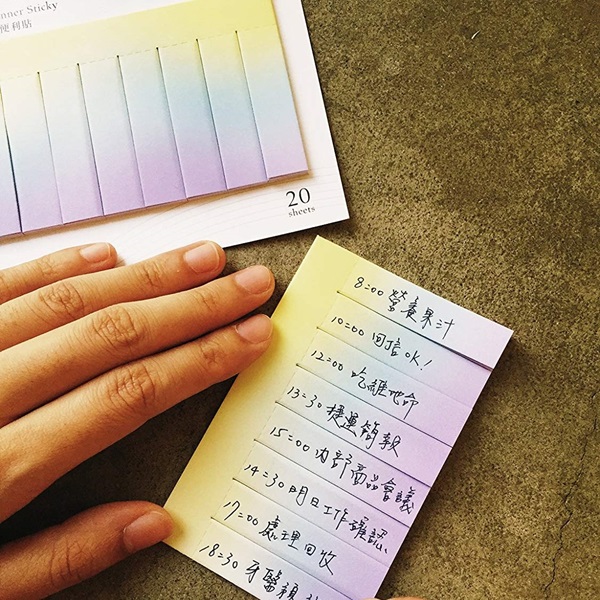 nner Sticky
便利貼
20
sheets
8:00 營養果汁
10:00 回信OK!
12:00 吃維他命
13:30 捷運簡報
15:00 內部商品會議
14:30 明日工作確認
17:00 處理回收
18:30 牙醫預